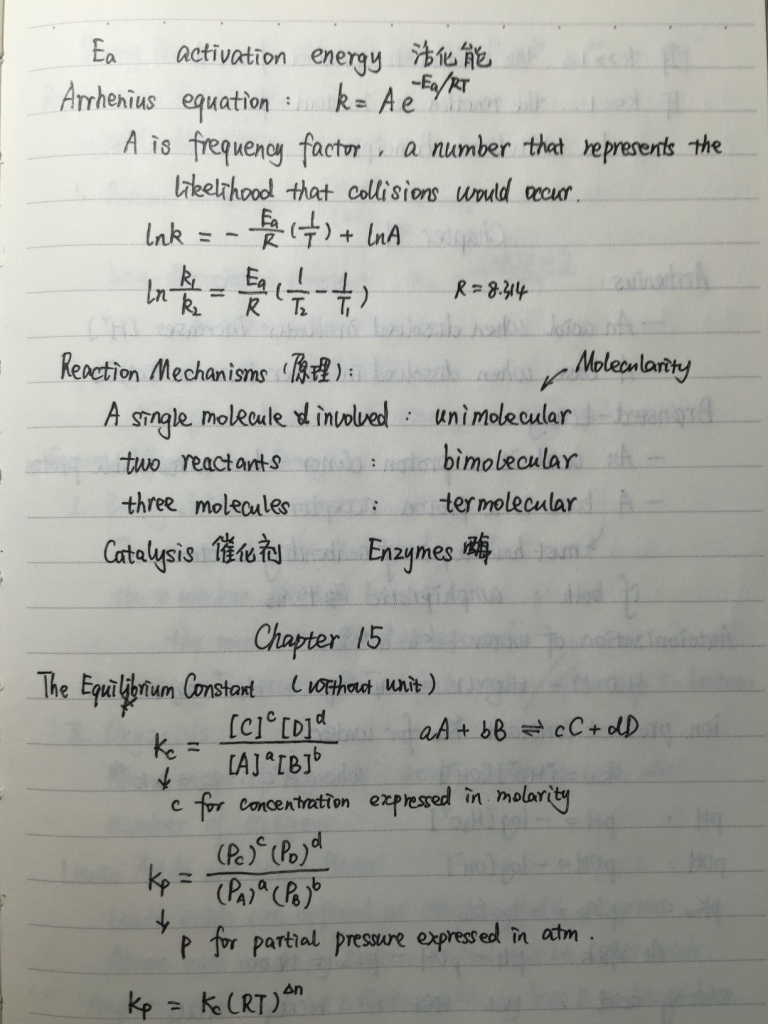 Ea activation energy 活化能
Arrhenius equation : k = A e^(-Ea/RT)
A is frequency factor, a number that represents the
likelihood that collisions would occur.
lnk = - Ea/R (1/T) + lnA
ln k₁/k₂ = Ea/R (1/T₂ - 1/T₁) R = 8.314
Reaction Mechanisms (原理): Molecularity
A single molecule involved : unimolecular
two reactants : bimolecular
three molecules : termolecular
Catalysis 催化剂 Enzymes 酶
Chapter 15
The Equilibrium Constant (without unit)
Kc = [C]^c [D]^d / [A]^a [B]^b aA + bB ⇌ cC + dD
↓
c for concentration expressed in molarity
Kp = (Pc)^c (PD)^d / (PA)^a (PB)^b
↓
p for partial pressure expressed in atm.
Kp = Kc (RT)^Δn